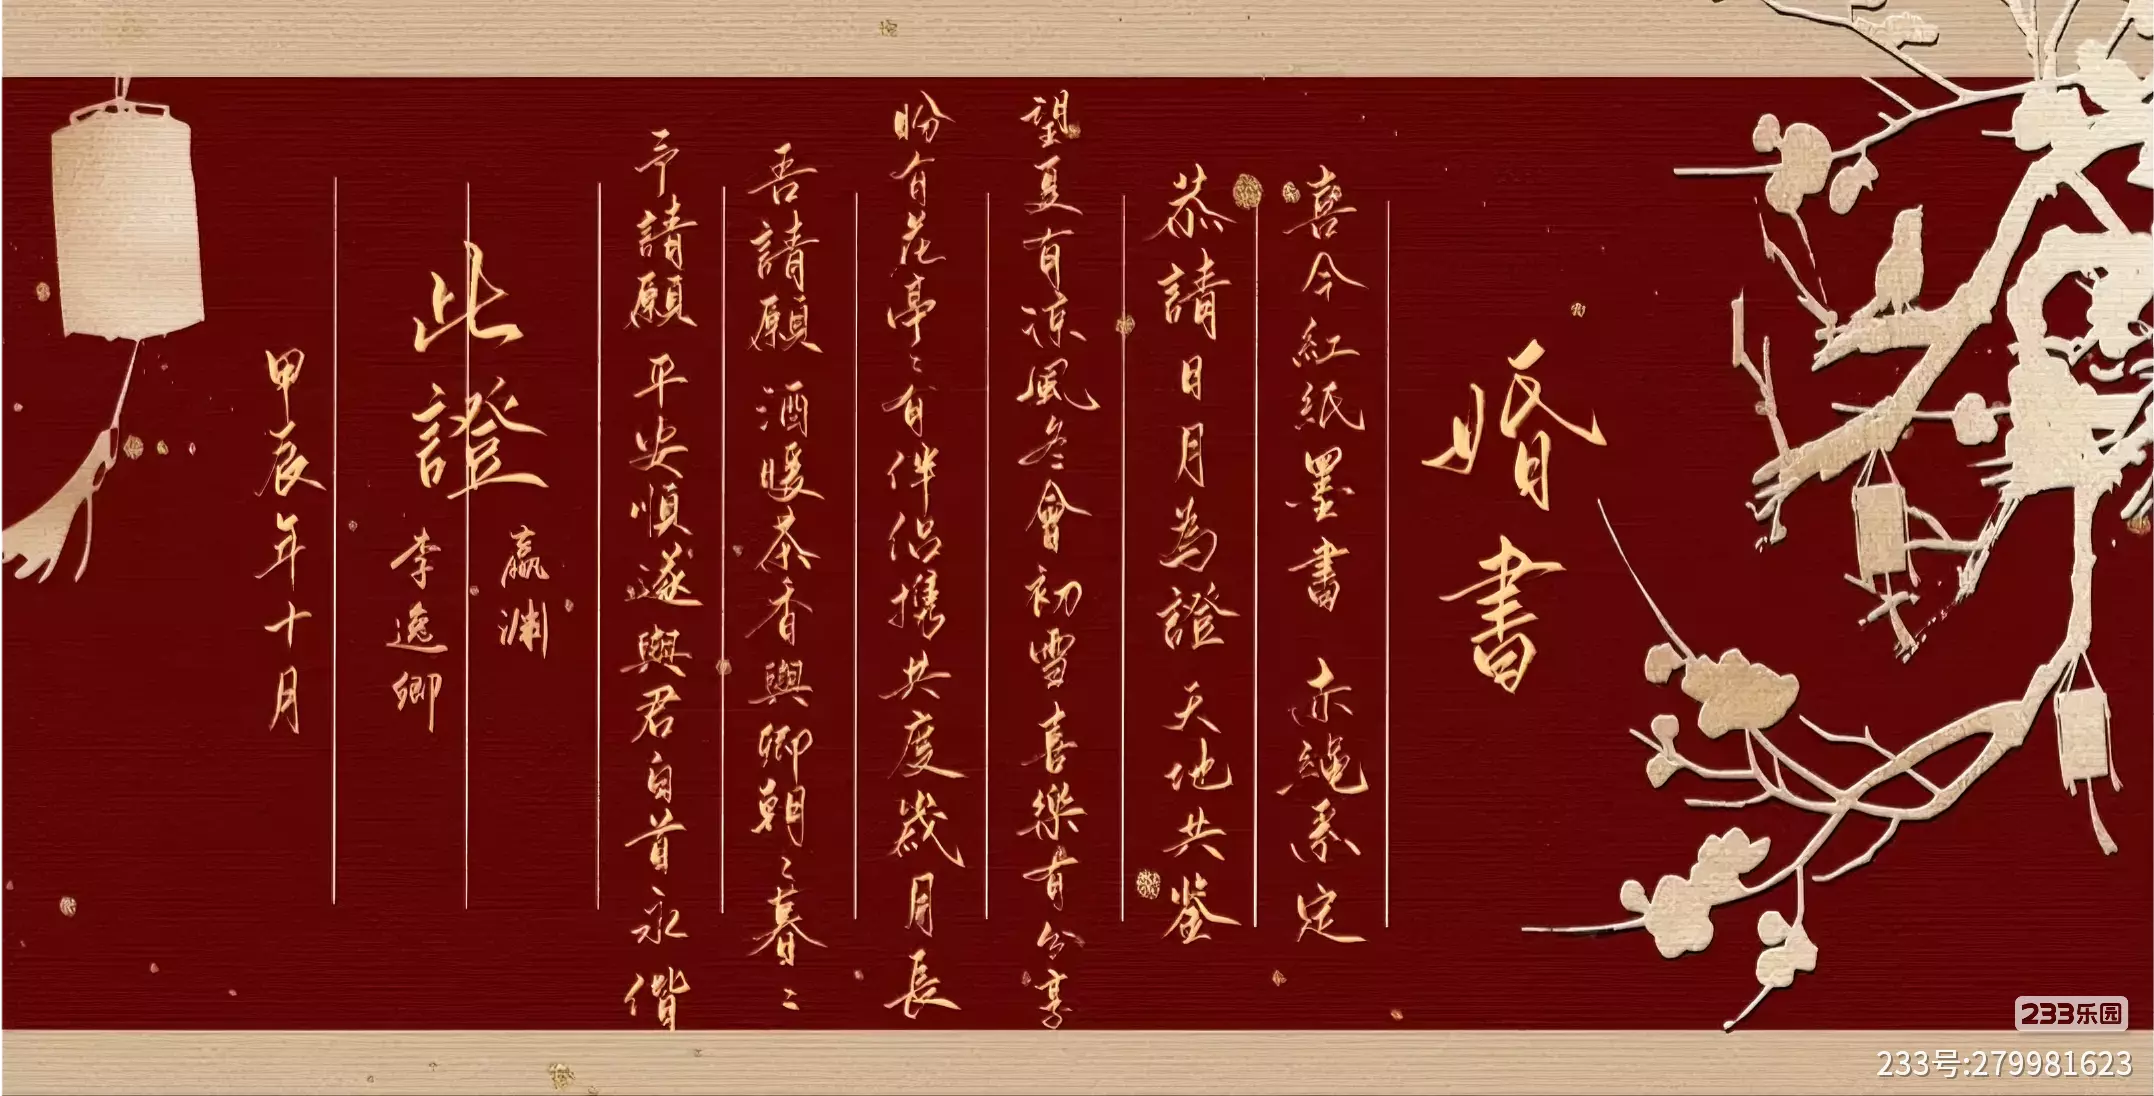 婚書
喜今紅紙墨書 赤繩系定
恭請日月為證 天地共鑒
望夏有涼風冬會初雪喜樂有分享
盼有花亭〻有伴侶攜共度歲月長
吾請願 酒暖茶香與卿朝〻暮〻
予請願 平安順遂與君白首永偕
此證
嬴渊
李逸卿
甲辰年十月
233乐园
233号:279981623